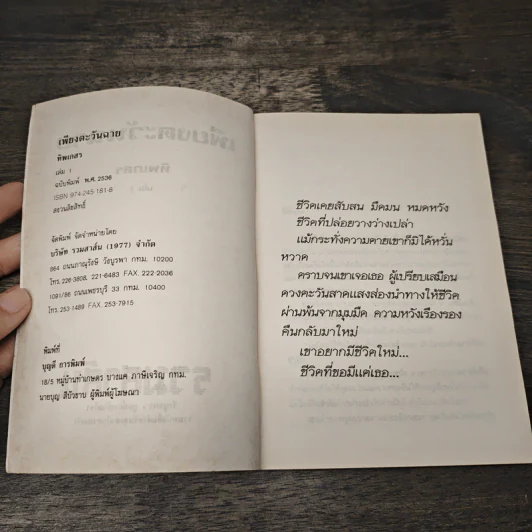 เพียงตะวันฉาย
ทิพเกสร
เล่ม 1
ฉบับพิมพ์ พ.ศ. 2536
ISBN 974-245-161-8
สงวนลิขสิทธิ์
จัดพิมพ์ จัดจำหน่ายโดย
บริษัท รวมสาส์น (1977) จำกัด
864 ถนนภาณุรังษี วังบูรพา กทม. 10200
โทร. 226-3808. 221-6483 FAX. 222-2036
1091/86 ถนนเพชรบุรี 33 กทม. 10400
โทร. 253-1489 FAX. 253-7915
พิมพ์ที่
บุญดี การพิมพ์
18/5 หมู่บ้านท่าเกษตร บางแค ภาษีเจริญ กทม.
นายบุญ ผู้พิมพ์ผู้โฆษณา
ชีวิตเคยสับสน มืดมน หมดหวัง
ชีวิตที่ปล่อยวางว่างเปล่า
แม้กระทั่งความตายเขาก็มิได้หวั่น
หวาด
ตราบจนเขาเจอเธอ ผู้เปรียบเสมือน
ดวงตะวันสาดแสงส่องนำทางให้ชีวิต
ผ่านพ้นจากมุมมืด ความหวังเรืองรอง
คืนกลับมาใหม่
เขาอยากมีชีวิตใหม่...
ชีวิตที่ขอมีแค่เธอ...